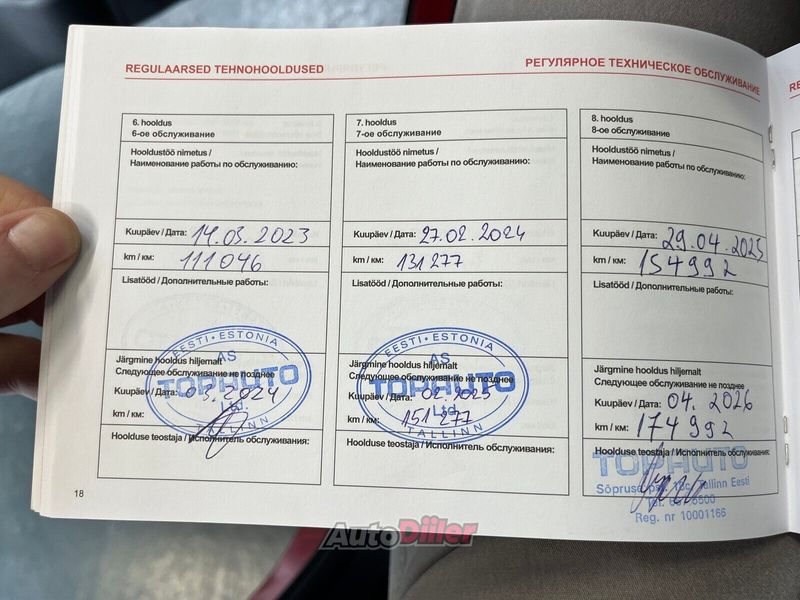 REGULAARSED TEHNOHOOLDUSED
РЕГУЛЯРНОЕ ТЕХНИЧЕСКОЕ ОБСЛУЖИВАНИЕ
6. hooldus
6-ое обслуживание
Hooldustöö nimetus /
Наименование работы по обслуживанию:
Kuupäev / Дата: 14.03.2023
km / км: 111046
Lisatööd / Дополнительные работы:
EESTI • ESTONIA
AS
TOPAUTO
Ltd.
TALLINN
Järgmine hooldus hiljemalt
Следующее обслуживание не позднее
Kuupäev / Дата: 03.2024
km / км:
Hoolduse teostaja / Исполнитель обслуживания:
7. hooldus
7-ое обслуживание
Hooldustöö nimetus /
Наименование работы по обслуживанию:
Kuupäev / Дата: 27.02.2024
km / км: 131277
Lisatööd / Дополнительные работы:
EESTI • ESTONIA
AS
TOPAUTO
Ltd.
TALLINN
Järgmine hooldus hiljemalt
Следующее обслуживание не позднее
Kuupäev / Дата: 02.2025
km / км: 151277
Hoolduse teostaja / Исполнитель обслуживания:
8. hooldus
8-ое обслуживание
Hooldustöö nimetus /
Наименование работы по обслуживанию:
Kuupäev / Дата: 29.04.2025
km / км: 154992
Lisatööd / Дополнительные работы:
Järgmine hooldus hiljemalt
Следующее обслуживание не позднее
Kuupäev / Дата: 04. 2026
km / км: 174992
Hoolduse teostaja / Исполнитель обслуживания:
TOPAUTO
Tallinn Eesti
Reg. nr 10001166
18
AutoDiller